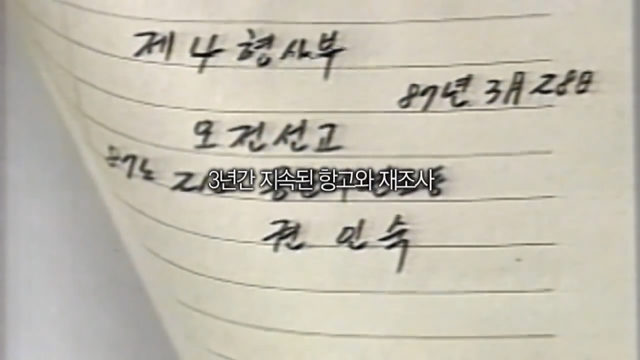 제 4 형사부
87년 3月 28日
오전선고
87노
3년간 지속된 항고와 재조사
권 인 숙